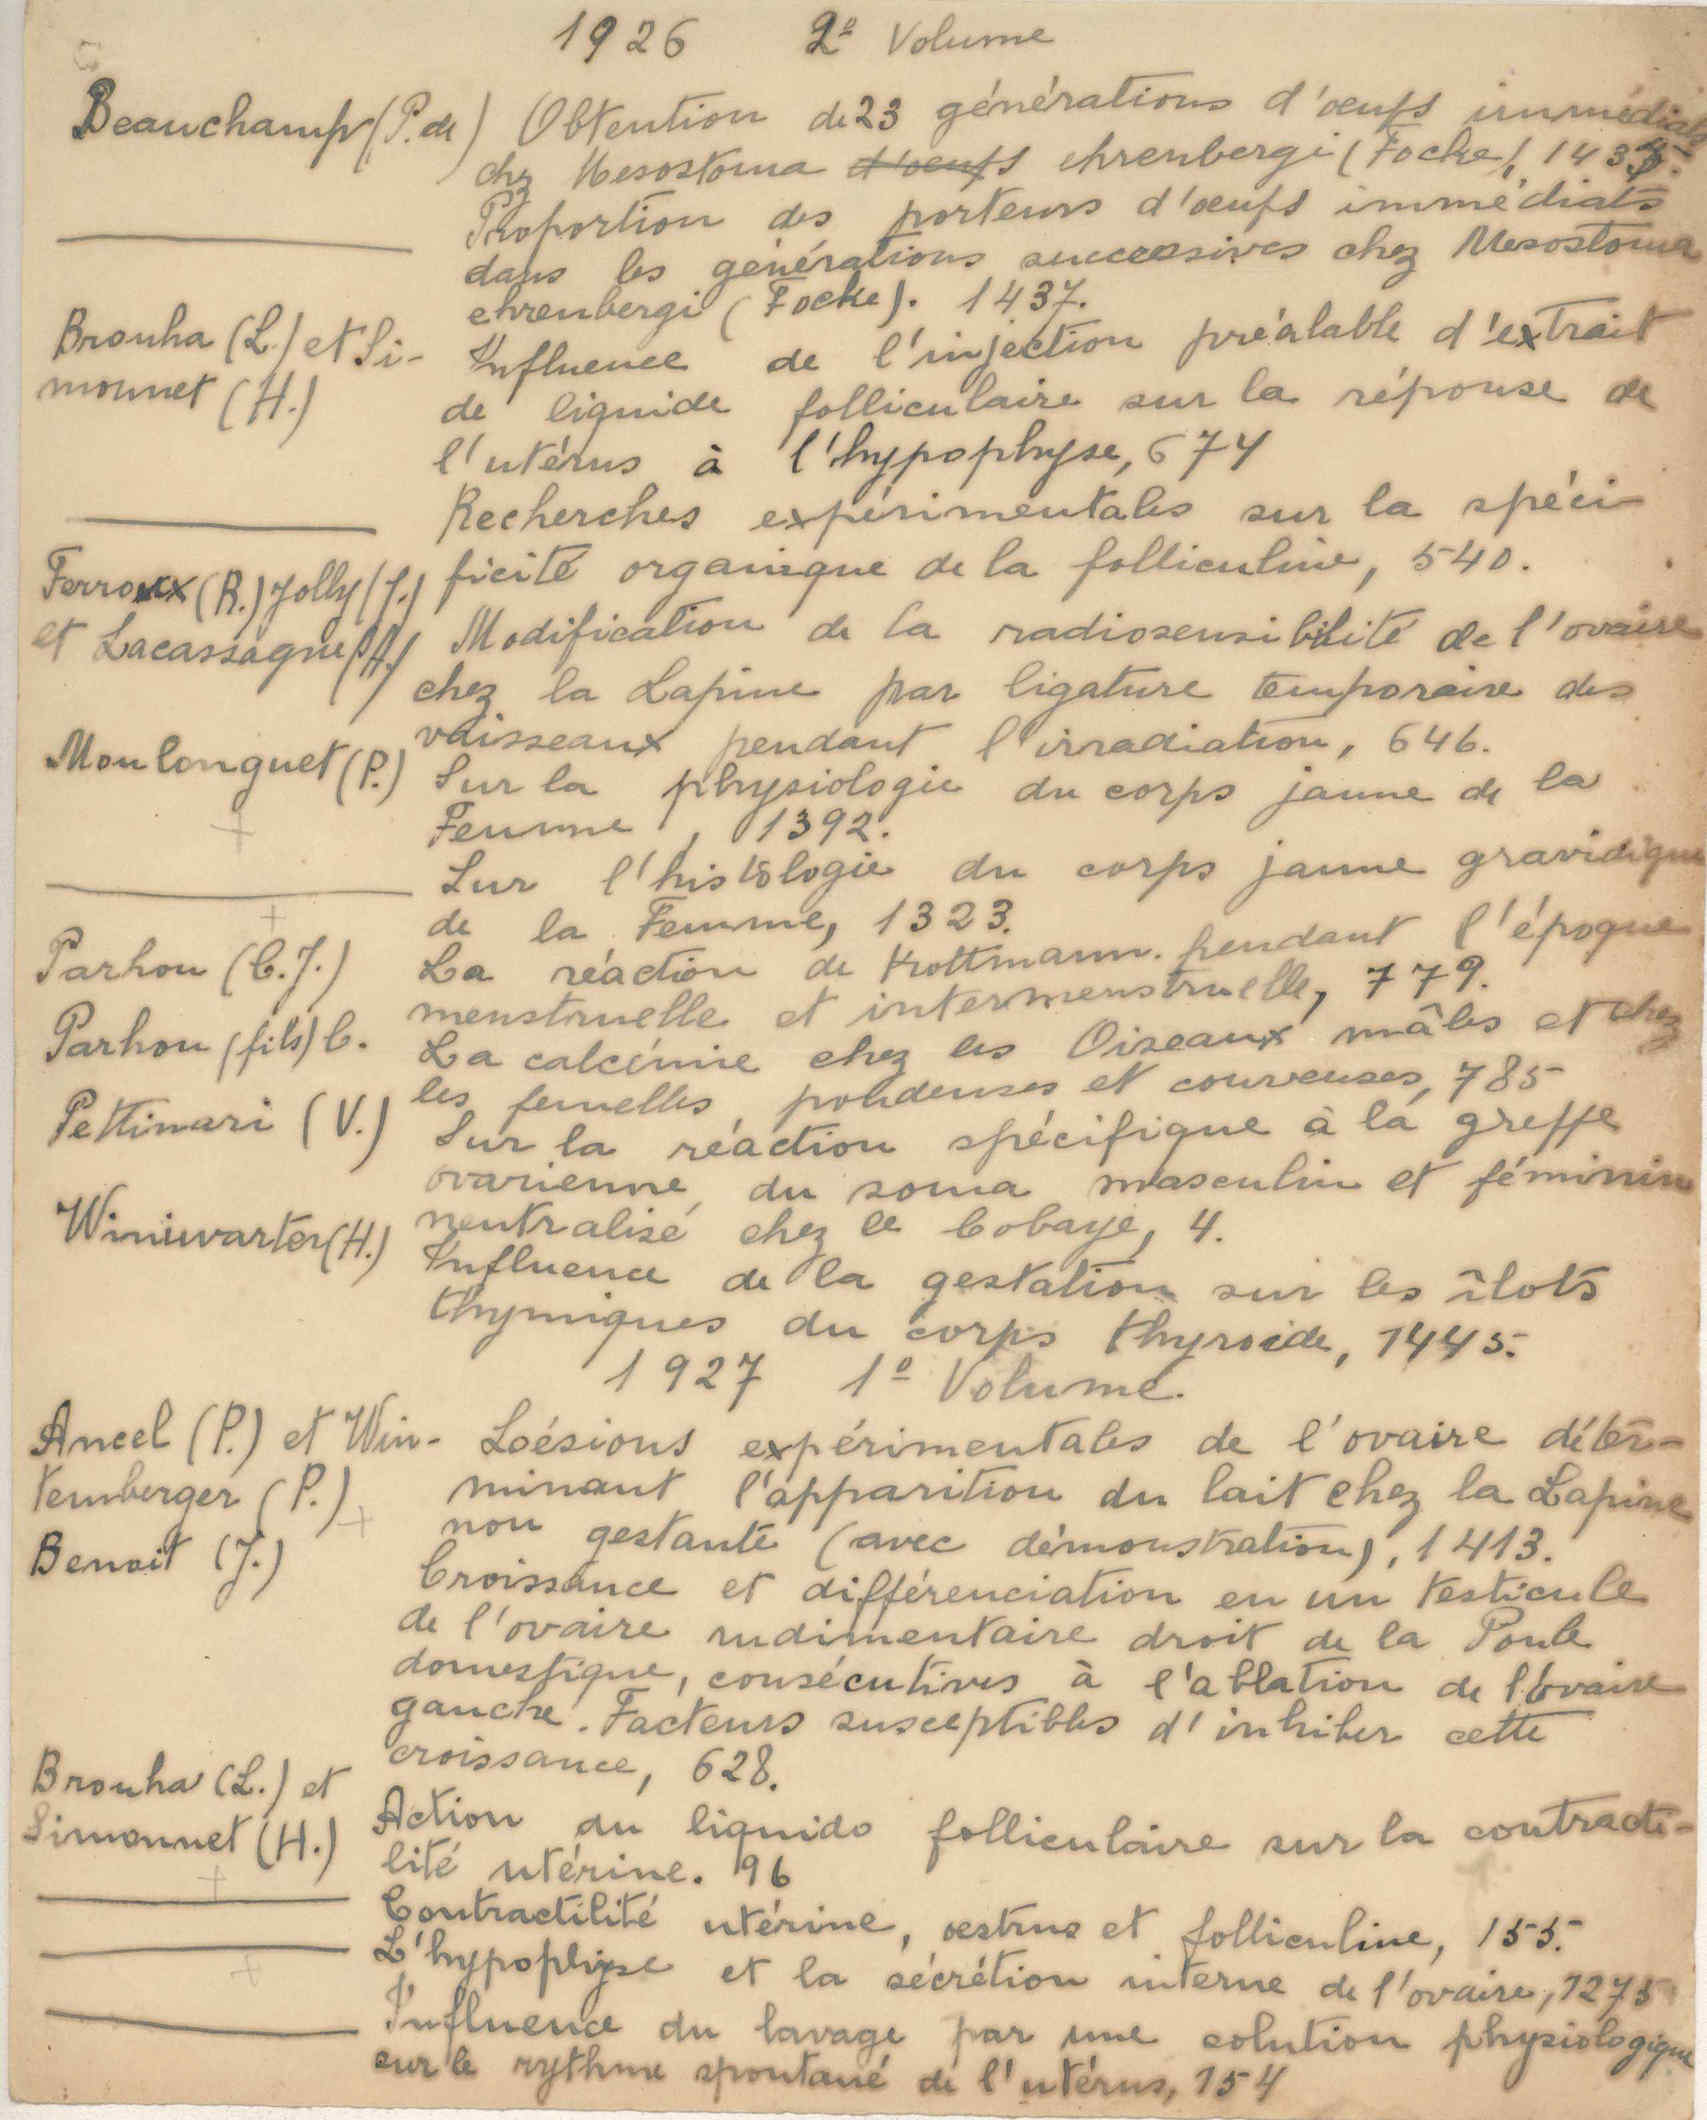 1926 2º Volume
Beauchamp (P. de) Obtention de 23 générations d'œufs immédiats
chez Mesostoma d'œufs ehrenbergi (Focke), 1435.
Proportion des porteurs d'œufs immédiats
dans les générations successives chez Mesostoma
ehrenbergi (Focke). 1437.
Brouha (L.) et Si-
monnet (H.)
Influence de l'injection préalable d'extrait
de liquide folliculaire sur la réponse de
l'utérus à l'hypophyse, 674
Recherches expérimentales sur la spéci-
ficité organique de la folliculine, 540.
Ferroux (R.) Jolly (J.)
et Lacassagne (A.)
Modification de la radiosensibilité de l'ovaire
chez la Lapine par ligature temporaire des
vaisseaux pendant l'irradiation, 646.
Moulonguet (P.)
Sur la physiologie du corps jaune de la
Femme, 1392.
Sur l'histologie du corps jaune gravidique
de la Femme, 1323.
Parhou (C. J.)
La réaction de Kottmann pendant l'époque
menstruelle et intermenstruelle, 779.
Parhou (fils) C.
La calcémie chez les Oiseaux mâles et chez
les femelles pondeuses et couveuses, 785
Pettinari (V.)
Sur la réaction spécifique à la greffe
ovarienne du soma masculin et féminin
neutralisé chez le Cobaye, 4.
Winiwarter (H.)
Influence de la gestation sur les îlots
thymiques du corps thyroide, 1445.
1927 1º Volume.
Ancel (P.) et Win-
temberger (P.)
Loésions expérimentales de l'ovaire déter-
minant l'apparition du lait chez la Lapine
non gestante (avec démonstration), 1413.
Benoit (J.)
Croissance et différenciation en un testicule
de l'ovaire rudimentaire droit de la Poule
domestique, consécutives à l'ablation de l'ovaire
gauche. Facteurs susceptibles d'inhiber cette
croissance, 628.
Brouha (L.) et
Simonnet (H.)
Action du liquido folliculaire sur la contracti-
lité utérine. 96
Contractilité utérine, oestrus et folliculine, 155.
L'hypophyse et la sécrétion interne de l'ovaire, 1275
Influence du lavage par une solution physiologique
sur le rythme spontané de l'utérus, 154